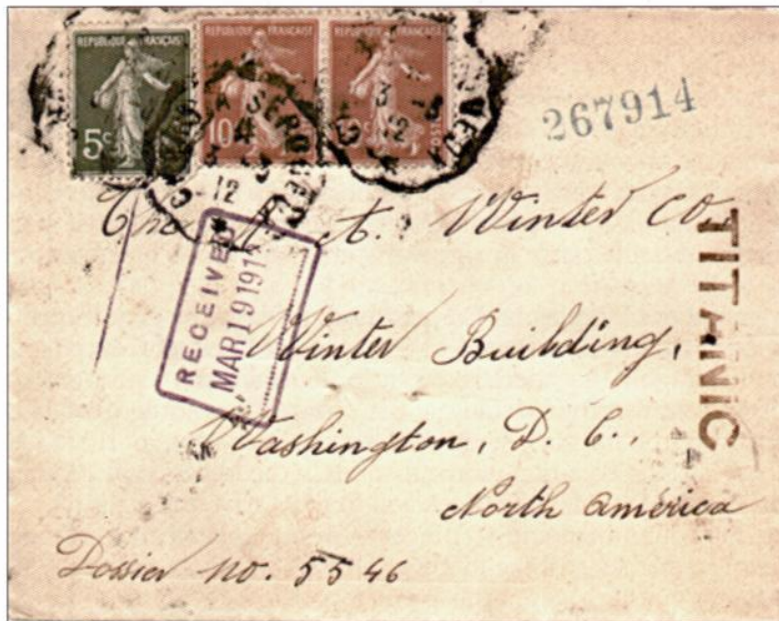 REPUBLIQUE FRANÇAISE
REPUBLIQUE FRANÇAISE
REPUBLIQUE FRANÇAISE
5c
10
267914
A. Winter Co
RECEIVED
MAR 19 191
TITANIC
Winter Building,
Washington, D. C.,
North América
Dossier no. 5546